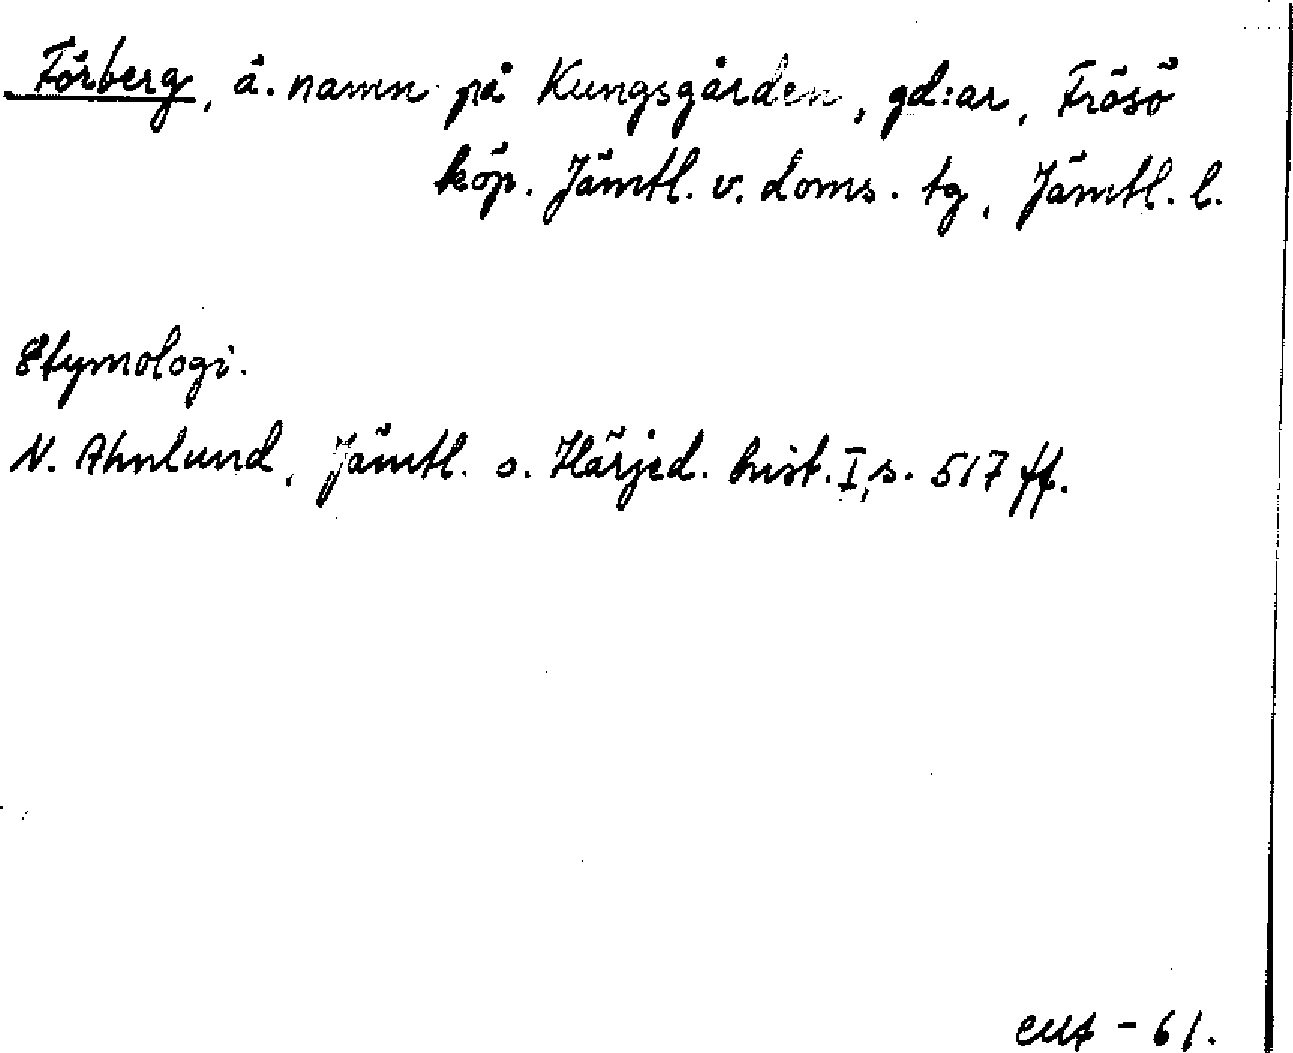 Förberg, ä. namn på Kungsgården, gd:ar, Frösö
köp. Jämtl. v. doms. tg, Jämtl. l.
Etymologi.
N. Ahnlund, Jämtl. o. Härjed. hist. I, s. 517 ff.
- 61.